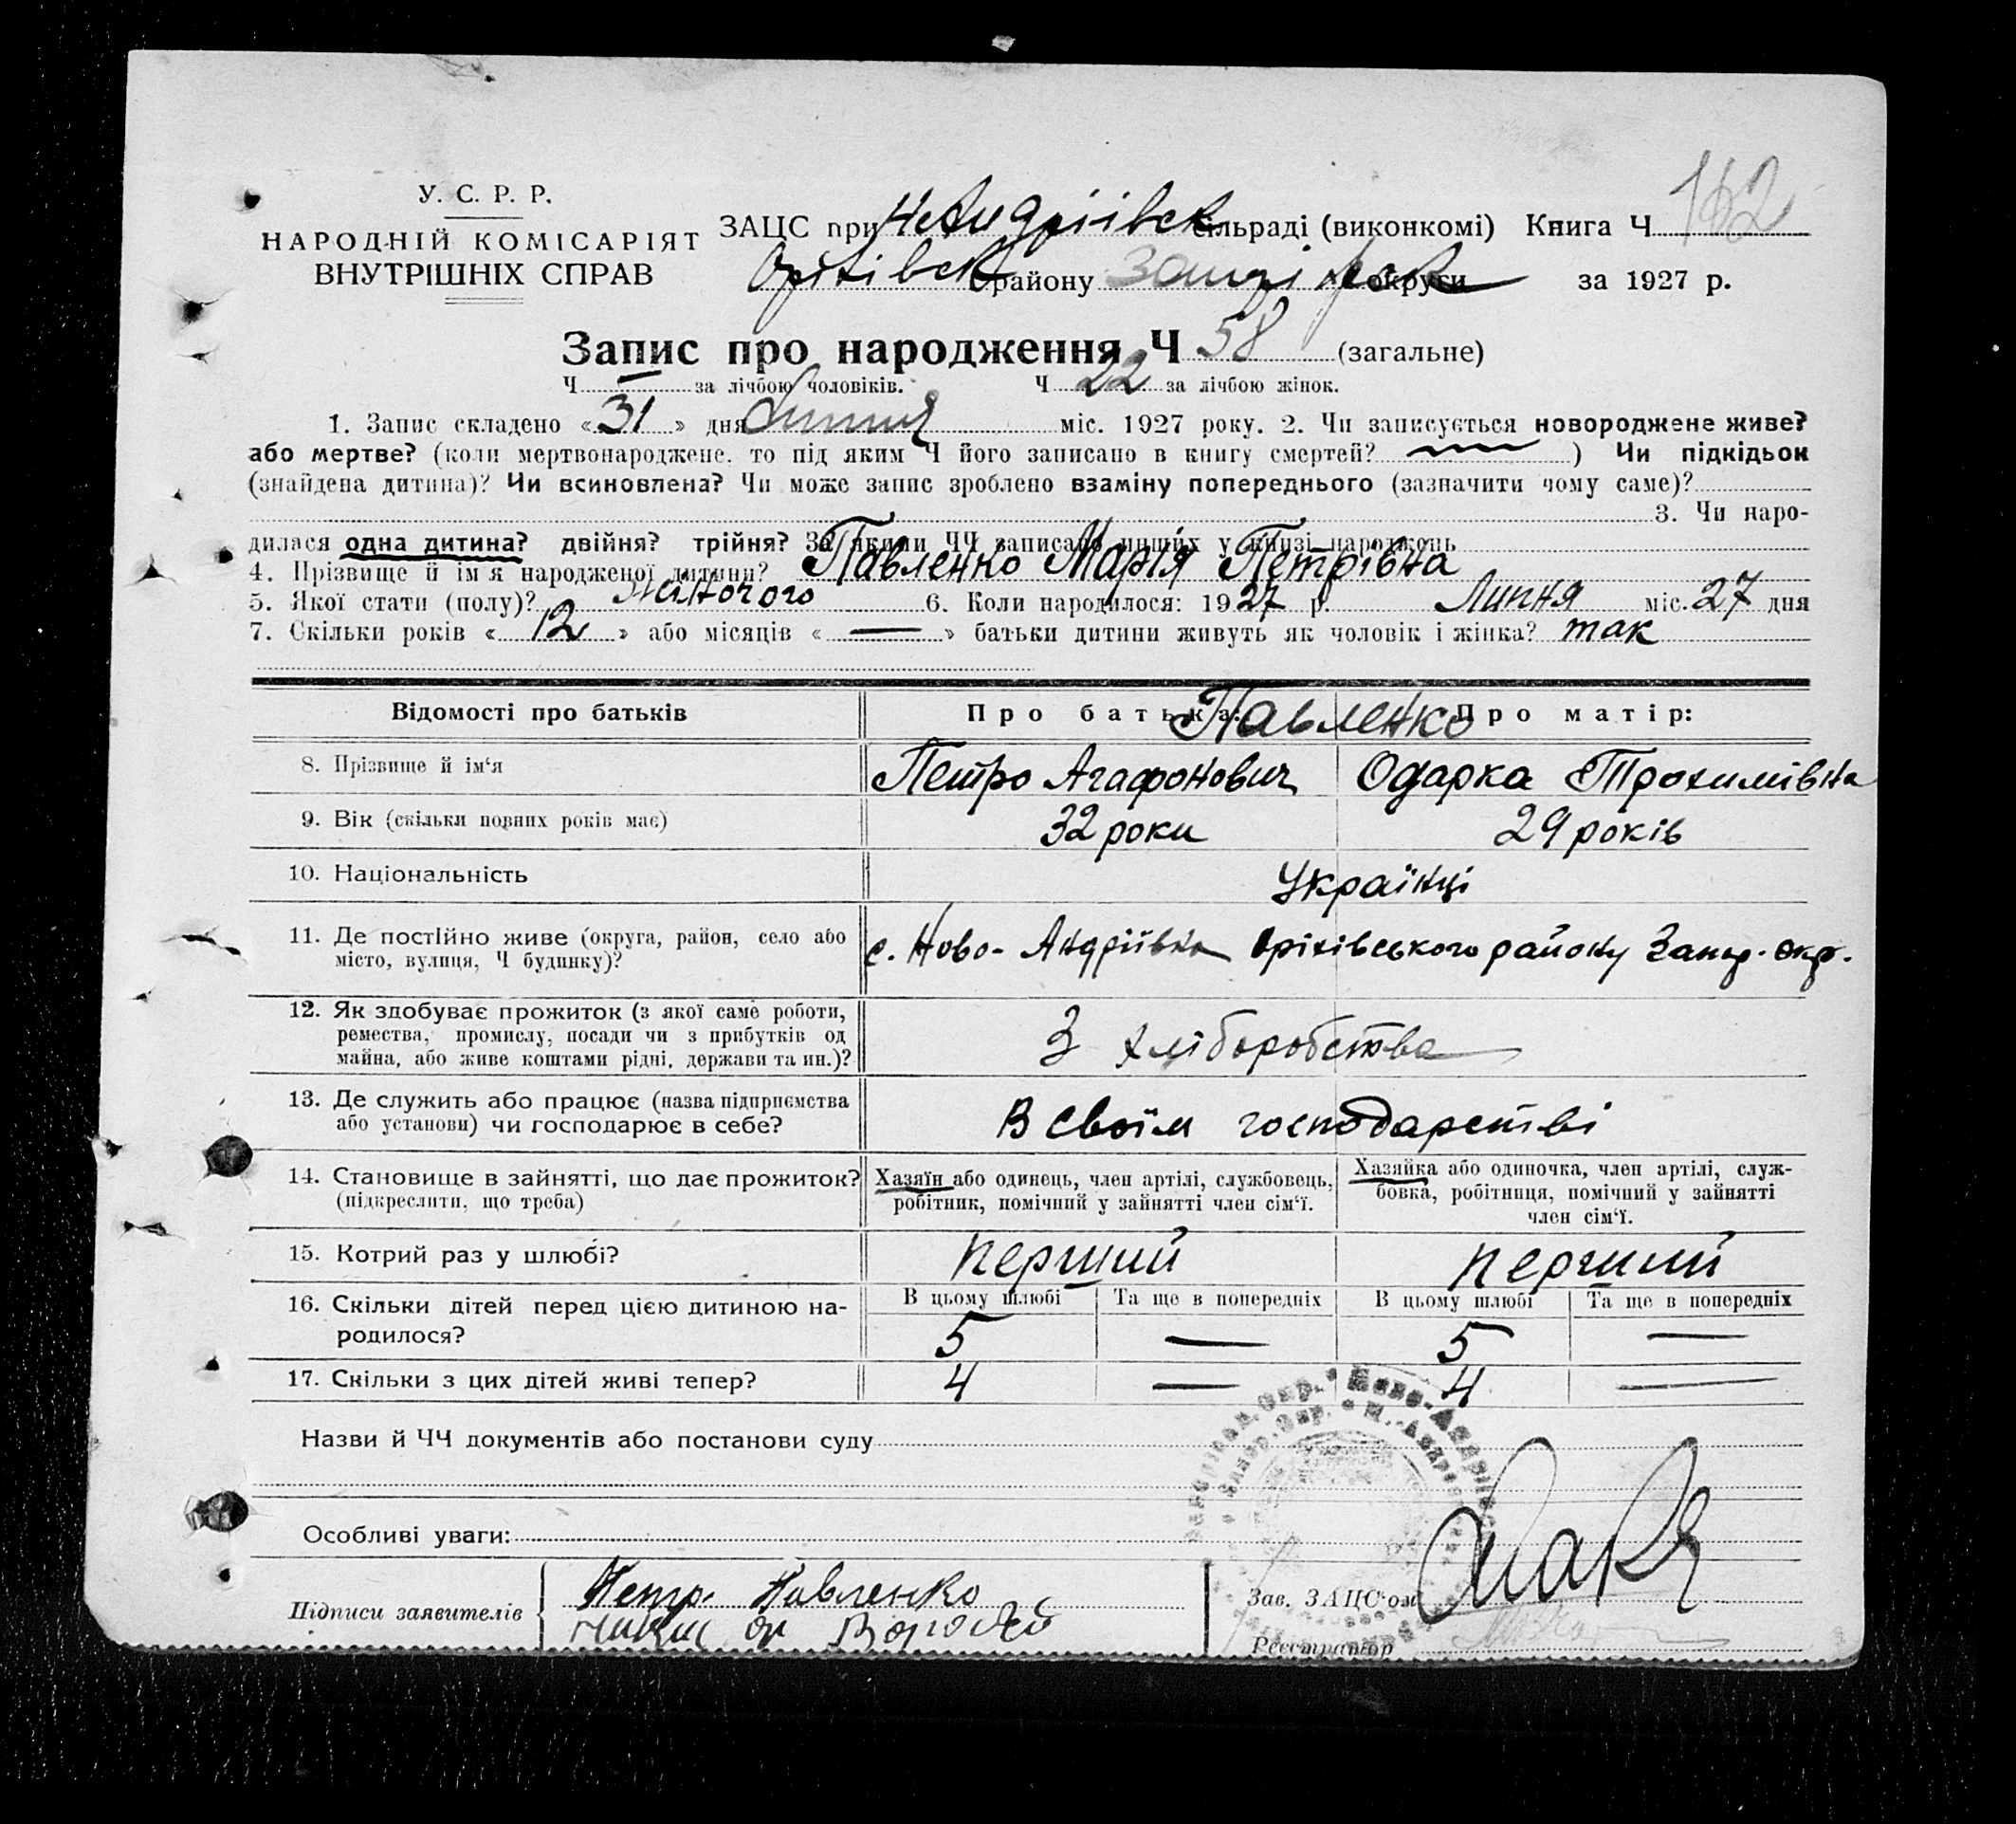 У. С. Р. Р.
НАРОДНІЙ КОМІСАРІЯТ
ВНУТРІШНІХ СПРАВ
ЗАЦС при Н Андріївск сільраді (виконкомі) Книга Ч 162
Оріхівськ району Запоріж округи за 1927 р.
Запис про народження Ч 58 (загальне)
Ч — за лічбою чоловіків. Ч 22 за лічбою жінок.
1. Запис складено «31» дня Липня міс. 1927 року. 2. Чи записується новороджене живе?
або мертве? (коли мертвонароджене, то під яким Ч його записано в книгу смертей? —) Чи підкідьок
(знайдена дитина)? Чи всиновлена? Чи може запис зроблено взаміну попереднього (зазначити чому саме)?
3. Чи наро-
дилася одна дитина? двійня? трійня? За якими ЧЧ записано инших у книзі народжень
4. Прізвище й ім'я народженої дитини? Павленко Марія Петрівна
5. Якої стати (полу)? Жіночого 6. Коли народилося: 1927 р. Липня міс. 27 дня
7. Скільки років «12» або місяців «—» батьки дитини живуть як чоловік і жінка? так
Відомості про батьків Про батька: Про матір:
Павленко
8. Прізвище й ім‘я Петро Агафонович Одарка Трохимівна
9. Вік (скільки повних років має) 32 роки 29 років
10. Національність Українці
11. Де постійно живе (округа, район, село або
місто, вулиця, Ч будинку)? с. Ново-Андріївка Оріхівського району Запор. окр.
12. Як здобуває прожиток (з якої саме роботи,
ремества, промислу, посади чи з прибутків од
майна, або живе коштами рідні, держави та ин.)? З хліборобства
13. Де служить або працює (назва підприємства
або установи) чи господарює в себе? В своїм господарстві
14. Становище в зайнятті, що дає прожиток?
(підкреслити, що треба)
Хазяїн або одинець, член артілі, службовець,
робітник, помічний у зайнятті член сім‘ї.
Хазяйка або одиночка, член артілі, служ-
бовка, робітниця, помічний у зайнятті
член сім‘ї.
15. Котрий раз у шлюбі? перший перший
В цьому шлюбі Та ще в попередніх В цьому шлюбі Та ще в попередніх
16. Скільки дітей перед цією дитиною на-
родилося? 5 — 5 —
17. Скільки з цих дітей живі тепер? 4 — 4 —
Назви й ЧЧ документів або постанови суду
Особливі уваги:
Підписи заявителів Петр Павленко
Зав. ЗАЦС‘ом
Реєстратор